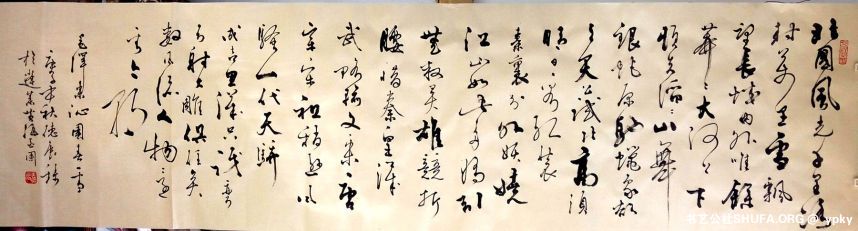 北国风光千里冰
封万里雪飘
望长城内外唯余
莽々大河上下
顿失滔々山舞
银蛇原驰蜡象欲
与天公试比高须
晴日看红装
素裹分外妖娆
江山如此多娇引
无数英雄竞折
腰惜秦皇汉
武略输文采唐
宗宋祖稍逊风
骚一代天骄
成吉思汗只识弯
弓射大雕俱往矣
数风流人物还
看今朝
毛泽东沁园春雪
书艺公社SHUFA.ORG @_ypky